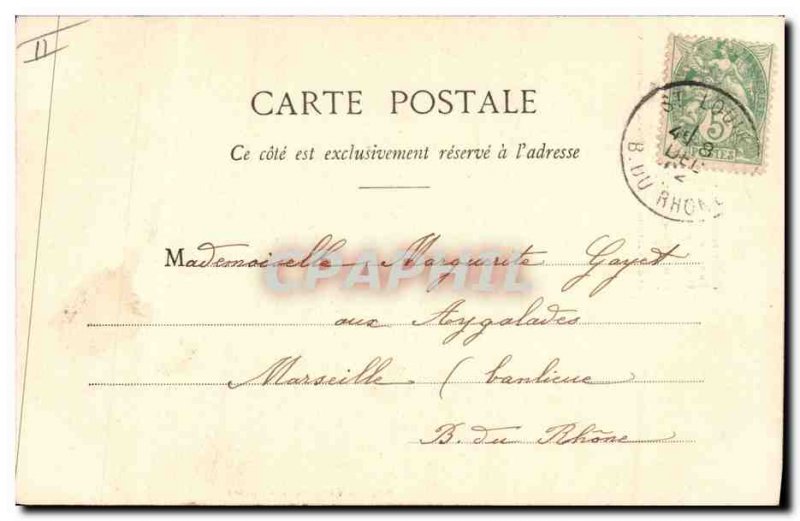 CARTE POSTALE
Ce côté est exclusivement réservé à l'adresse
Mademoiselle Marguerite Gayet
aux Aygalades
Marseille (banlieue
B. du Rhône
CPAPHIL
5
POSTES
ST LOUIS
8
DEC
B. DU RHONE
11